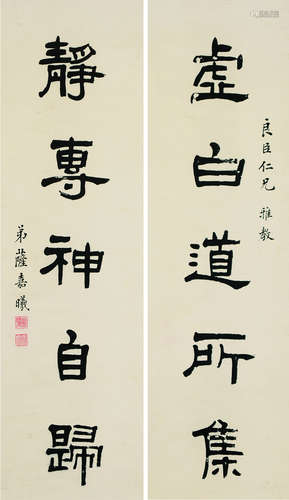 虛白道所集
良臣仁兄 雅教
靜專神自歸
弟薩嘉曦